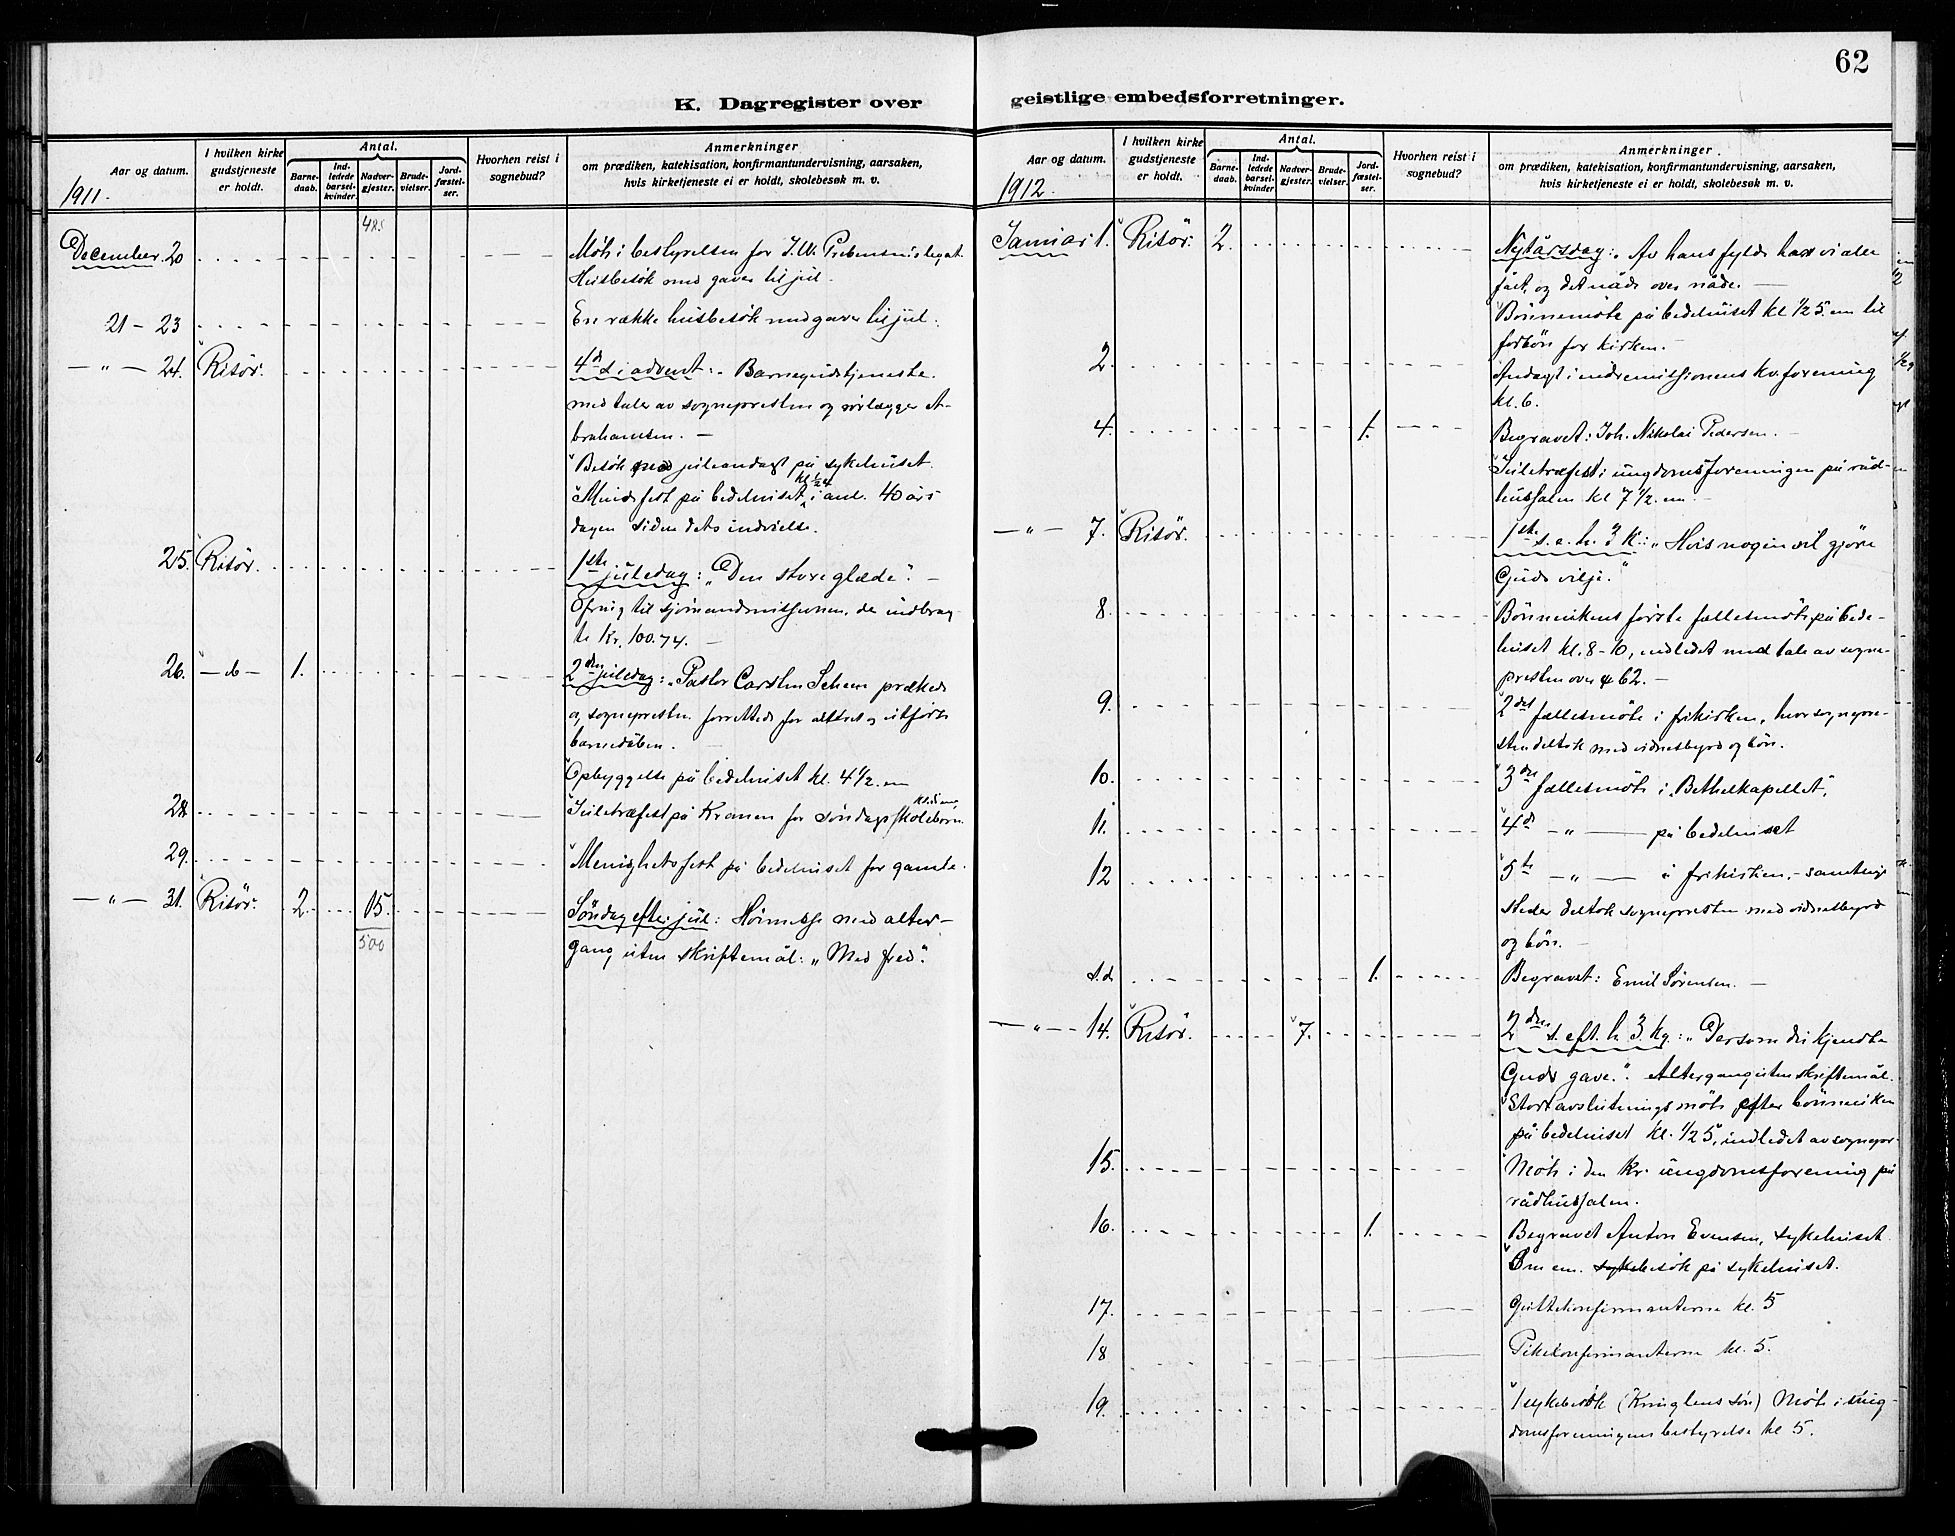 62
K. Dagregister over geistlige embedsforretninger.
Aar og datum.
I hvilken kirke gudstjeneste er holdt.
Antal.
Barne-daab.
Ind-ledede barsel-kvinder.
Nadver-gjester.
Brude-vielser.
Jord-fæstel-ser.
Hvorhen reist i sognebud?
Anmerkninger
om prædiken, katekisation, konfirmantundervisning, aarsaken,
hvis kirketjeneste ei er holdt, skolebesøk m. v.
1911.
485
December 20 Møte i bestyrelsen for J.W. Prebensens legat.
Husbesök med gaver til jul.
21 - 23 En række husbesök med gaver til jul.
— " — 24. Risör. 4d s i advent: Barnegudstjeneste
med taler av sognepresten og
brahamsen. —
Besök med juleandagt på sykehuset.
kl 1/2 4
Mindefest på bedehuset, i anl. 40 års
dagen siden dets indvielse.
25. Risör. 1ste juledag: "Den store glæde". —
Ofring til sjömandsmissionen, der indbrag-
te Kr. 100.74. —
26. — do — 1. 2den juledag: Pastor Carsten prækede
og sognepresten forrettede for alteret og utførte
barnedåben. —
Opbyggelse på bedehuset kl. 4 1/2 em
28. Juletræfest på Kranen for söndagsskolebörn.
29. Menighetsfest på bedehuset for gamle.
— " — 31. Risör. 2. 15. Söndag efter jul: Höimesse med alter-
500
gang uten skriftemål: "Med fred".
Aar og datum.
I hvilken kirke gudstjeneste er holdt.
Antal.
Barne-daab.
Ind-ledede barsel-kvinder
Nadver-gjester.
Brude-vielser.
Jord-fæstel-ser.
Hvorhen reist i sognebud?
Anmerkninger.
om prædiken, katekisation, konfirmantundervisning, aarsaken,
hvis kirketjeneste ei er holdt, skolebesøk m. v.
1912.
Januar 1. Risör. 2. Nytårsdag: Av hans fylde har vi alle
fåt, og det nåde over nåde. —
Bönnemöte på bedehuset kl 1/2 5. em til
forbön for kirken. —
2. Andagt i indremissionens kv.forening
kl. 6.
4. 1. Begravet: Joh. Nikolai Pedersen. —
Juletræfest i ungdomsforeningen på råd-
hussalen kl 7 1/2. em. —
— " — 7. Risör. 1ste s. e. h. 3 K.: "Hvis nogen vil gjöre
Guds vilje."
8. Bönneukens förste fællesmöte på bede-
huset kl. 8 - 10, indledet med tale av sogne-
presten over 62. —
9. 2det fællesmöte i frikirken, hvor sognepre-
sten deltok med vidnesbyrd og bön.
10. 3die fællesmöte i "Bethelkapellet".
11. 4de — " — på bedehuset
12 5te — " — i frikirken, — samtlige
steder deltok sognepresten med vidnesbyrd
og bön. —
s.d 1. Begravet: Emil Sørensen. —
— " — 14. Risör. 7. 2den s. eft. h. 3 kg: "Dersom du kjendte
Guds gave." Altergang uten skriftemål.
Stort avslutningsmöte efter bönneuken
på bedehuset kl. 1/2 5, indledet av sognepr.
15. Möte i den kr. ungdomsforening på
rådhussalen.
16. 1. Begravet Anton Evensen, sykehuset.
Om em. sykebesök på sykehuset.
17. Guttekonfirmanterne kl. 5
18 Pikekonfirmanterne kl. 5.
19. 1 sykebesök ( sön) Möte i ung-
domsforeningens bestyrelse kl 5.